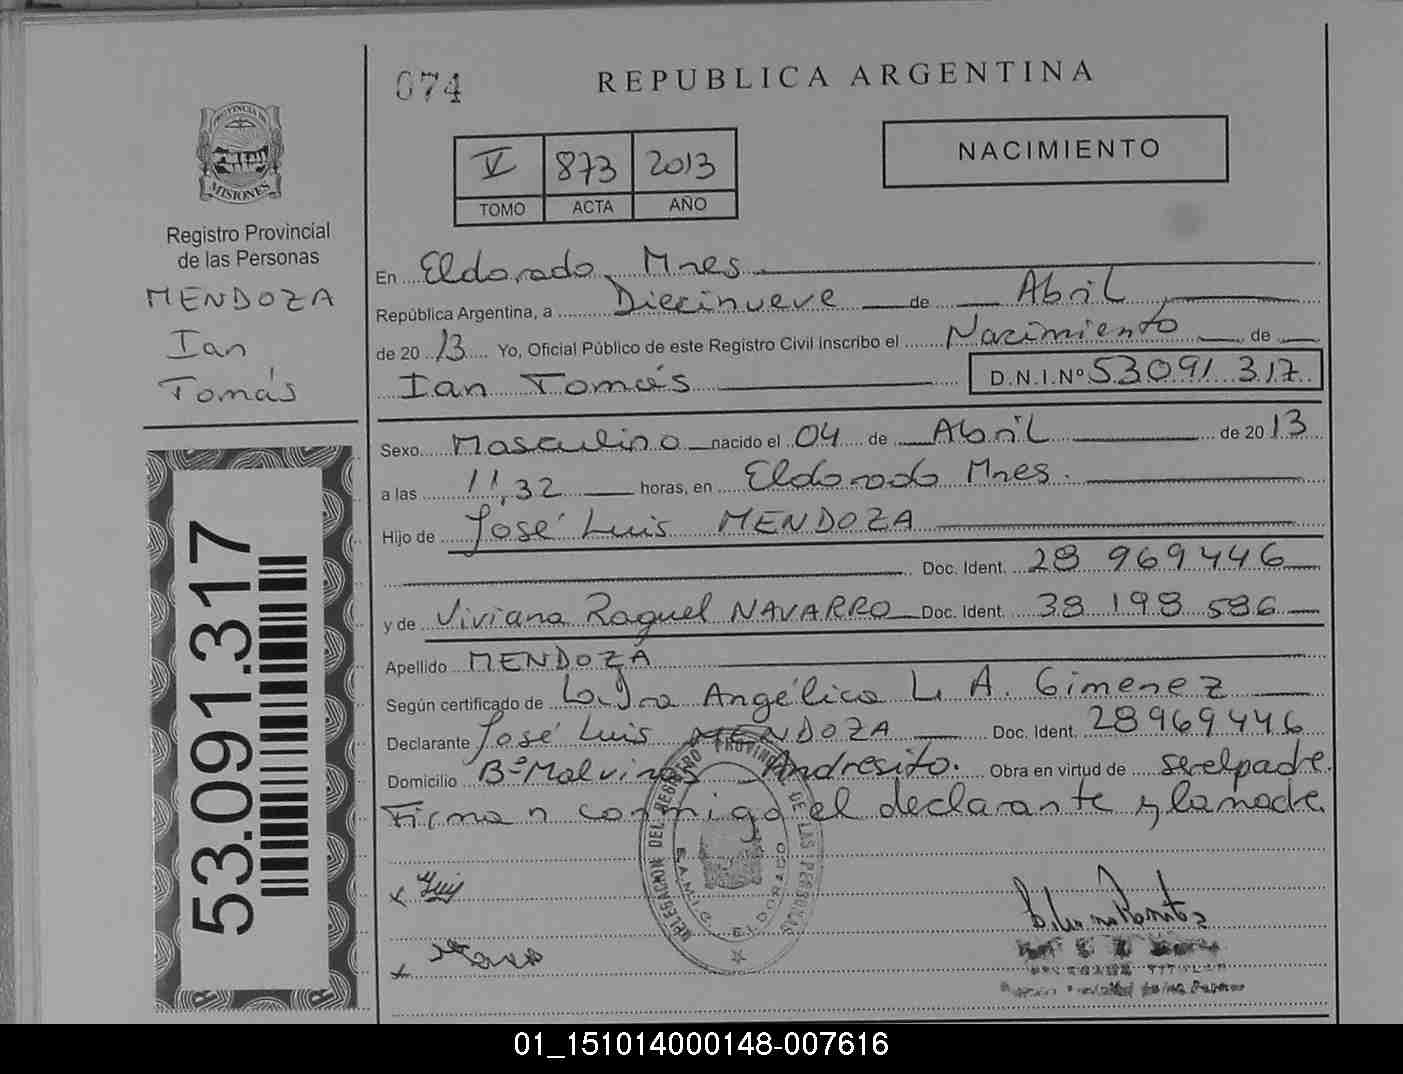 074
REPUBLICA ARGENTINA
PROVINCIA DE
MISIONES
Registro Provincial
de las Personas
MENDOZA
Ian
Tomás
53.091.317
V 873 2013
TOMO ACTA AÑO
NACIMIENTO
En Eldorado, Mnes
República Argentina, a Diecinueve de Abril
de 2013 Yo, Oficial Público de este Registro Civil inscribo el Nacimiento de
Ian Tomás D.N.I.Nº 53091317
Sexo Masculino nacido el 04 de Abril de 2013
a las 11,32 horas, en Eldorado Mnes.
Hijo de José Luis MENDOZA
Doc. Ident. 28 969446
y de Viviana Raquel NAVARRO Doc. Ident. 38 198 586
Apellido MENDOZA
Según certificado de La Dra Angélica L. A. Gimenez
Declarante José Luis MENDOZA Doc. Ident. 28969446
Domicilio Bº Malvinas Andresito. Obra en virtud de ser el padre.
Firman conmigo el declarante y la madre.
DELEGACION DEL REGISTRO PROVINCIAL DE LAS PERSONAS
ELDORADO
x Luis
x
01_151014000148-007616